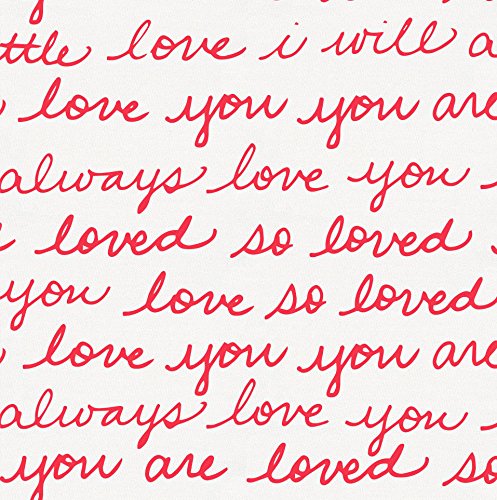 ttle love i will a
love you you are
always love you
loved so loved
you love so loved
love you you are
always love you
you are loved so